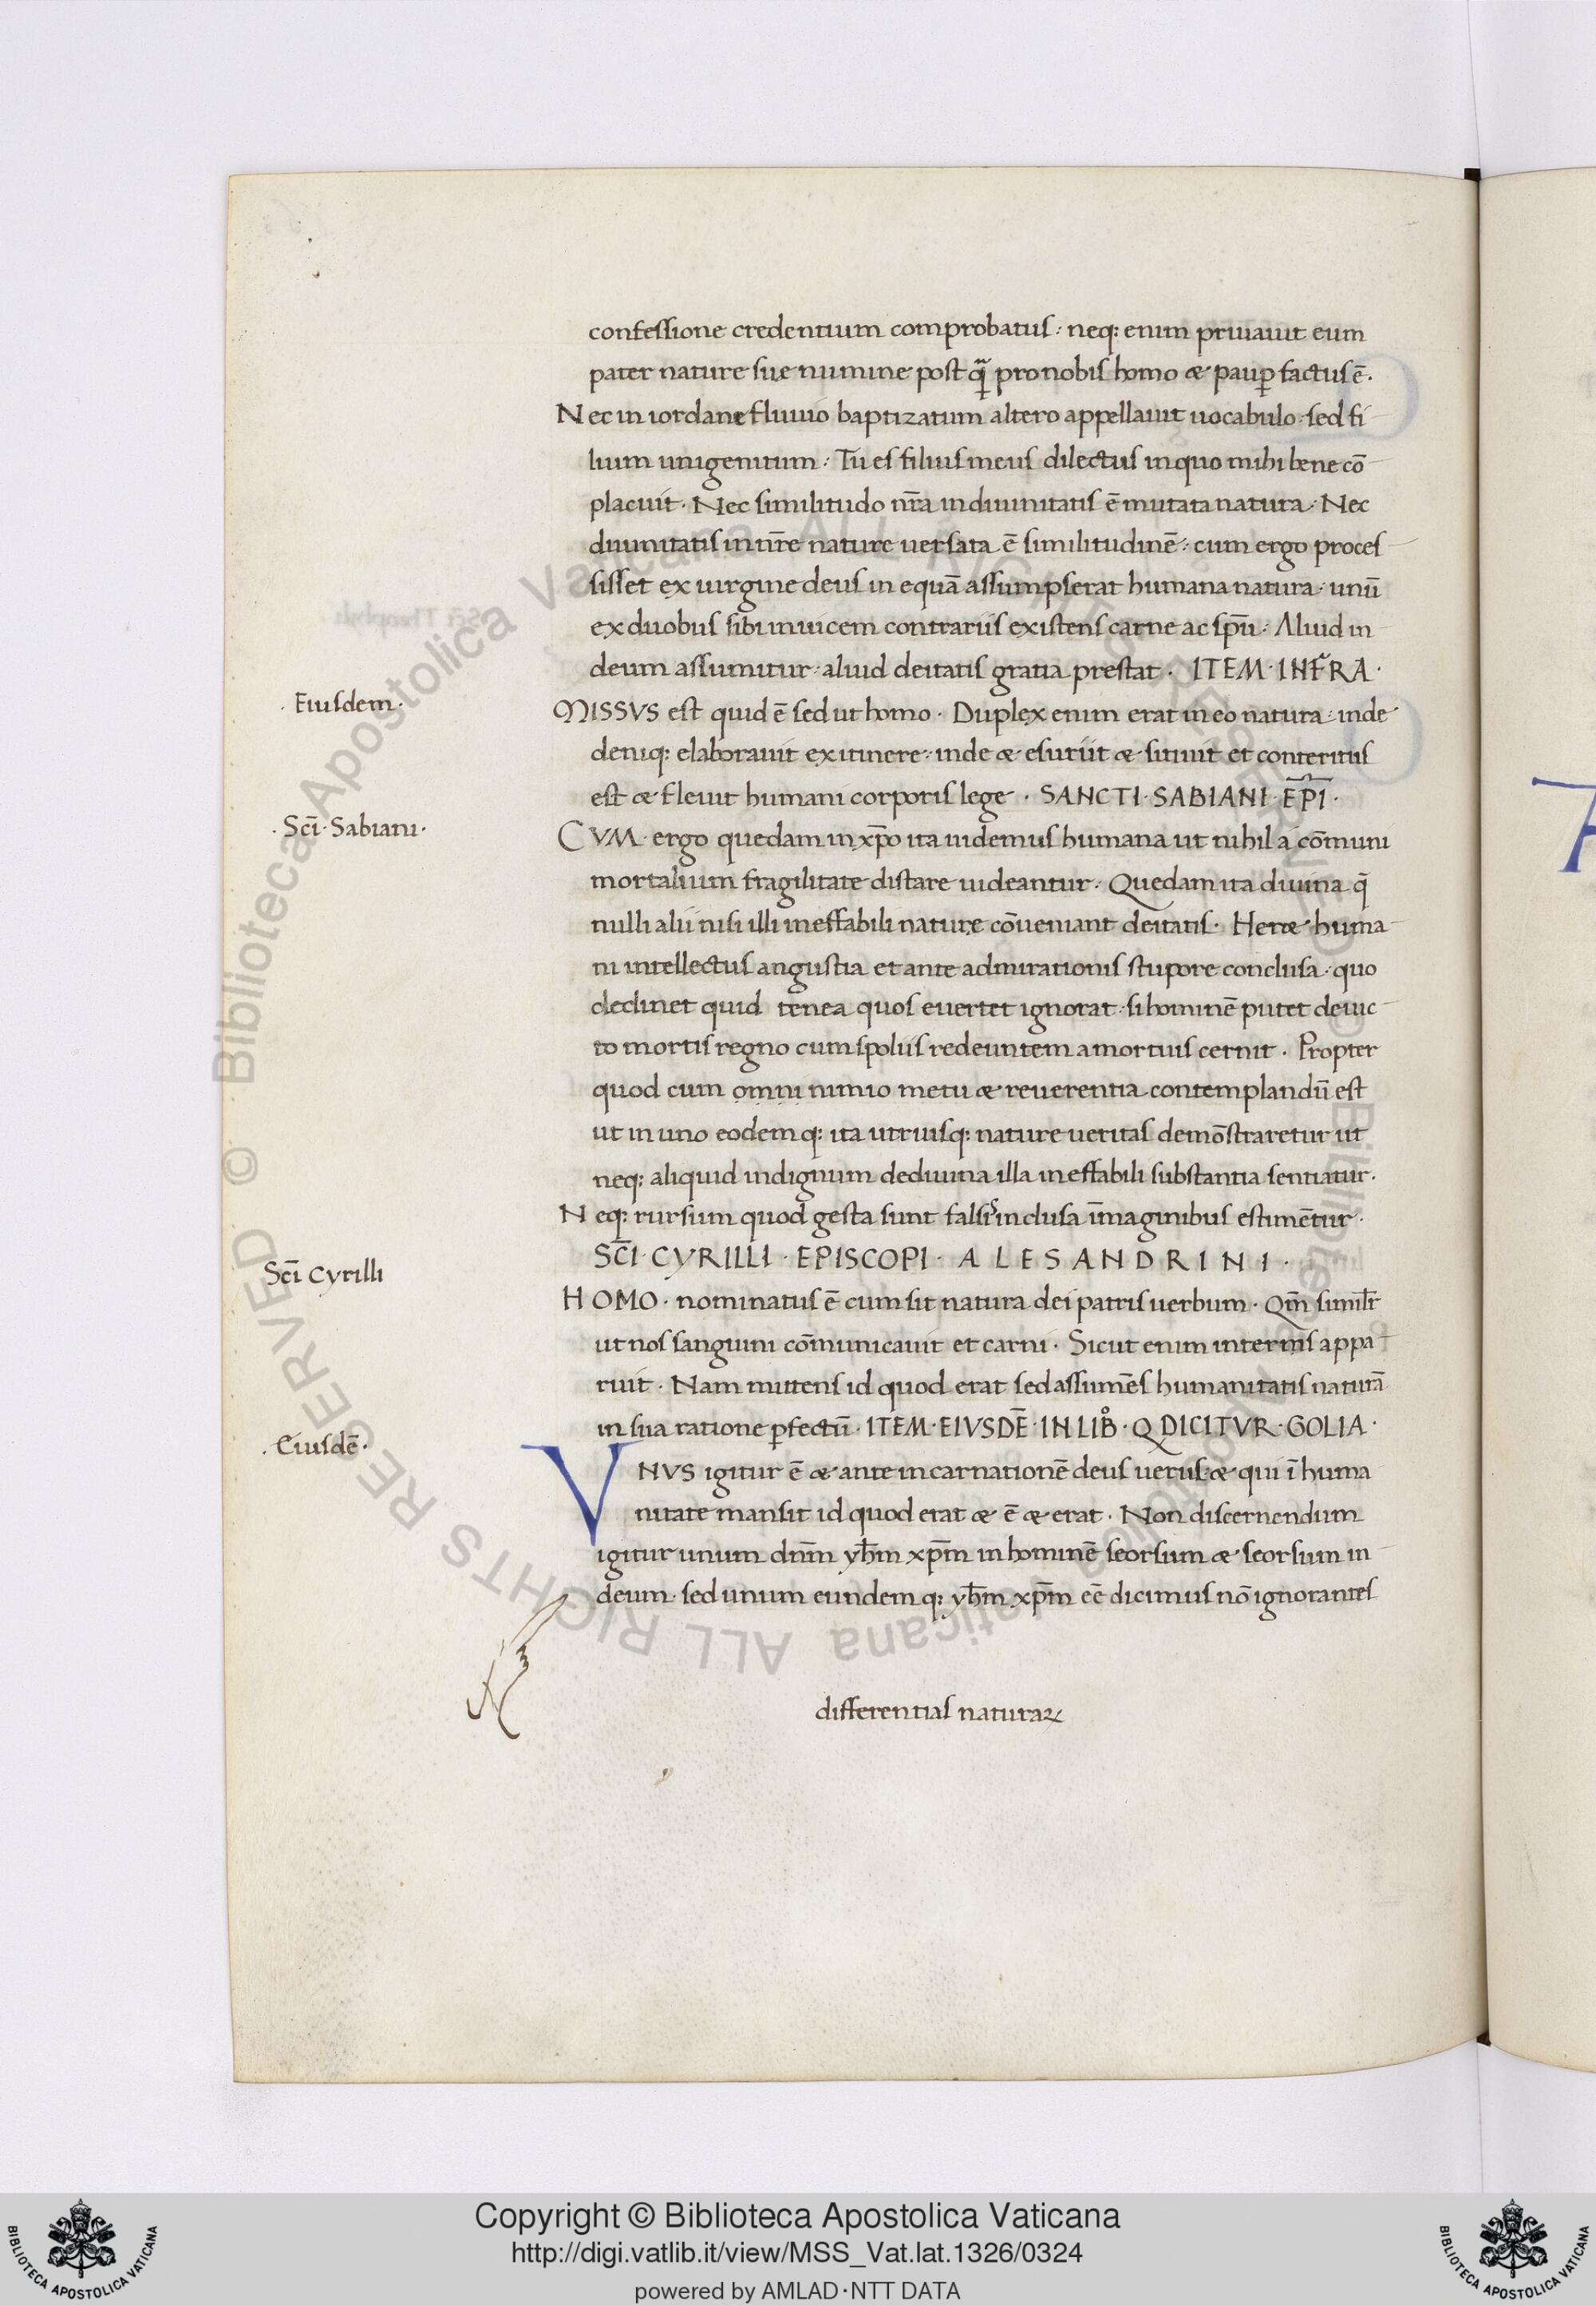 confessione credentium comprobatus: neq: enim priuauit eum
pater nature sue numine post q̄ pro nobis homo & paup̱ factus ē.
Nec in iordane fluuio baptizatum altero appellauit uocabulo. sed fi
lium unigenitum: Tu es filius meus dilectus in quo mihi bene cō
placuit. Nec similitudo nr̄a in diuinitatis ē mutata natura. Nec
diuinitatis in nr̄e nature uersata ē similitudinē: cum ergo proces
sisset ex uirgine deus in equā assumpserat humana natura. unū
ex duobus sibi inuicem contrariis existens carne ac sp̄u. Aliud in
deum assumitur. aliud deitatis gratia prestat. ITEM·INFRA·
Eiusdem.
MISSVS est quid ē sed ut homo. Duplex enim erat in eo natura. inde
deniq: elaborauit ex itinere. inde & esuriit & sitiuit et conteritus
est & fleuit humani corporis lege. SANCTI·SABIANI·EP̄I·
·Sc̄i·Sabiani·
CVM·ergo quedam in xp̄o ita uidemus humana ut nihil a cōmuni
mortalium fragilitate distare uideantur. Quedam ita diuina q̄
nulli alii nisi illi ineffabili nature cōueniant deitatis. Heret huma
ni intellectus angustia et ante admirationis stupore conclusa. quo
declinet quid tenea quos euertet ignorat. si hominē putet deuic
to mortis regno cum spoliis redeuntem a mortuis cernit. Propter
quod cum omni nimio metu & reuerentia contemplandū est
ut in uno eodemq: ita utriusq: nature ueritas demōstraretur ut
neq: aliquid indignum de diuina illa ineffabili substantia sentiatur.
Neq: rursum quod gesta sunt falsis inclusa īmaginibus estimētur.
SC̄I·CYRILLI·EPISCOPI·ALESANDRINI·
Sc̄i Cyrilli
HOMO·nominatus ē cum sit natura dei patris uerbum. Qm̄ simil̄r
ut nos sanguini cōmunicauit et carni. Sicut enim in terris appa
ruit. Nam mittens id quod erat sed assumēs humanitatis naturā
in sua ratione p̱fectū. ITEM·EIVSDĒ·IN LIB̊·Q DICITVR·GOLIA·
·Eiusdē·
VNVS igitur ē & ante incarnationē deus uerus & qui ī huma
nitate mansit id quod erat & ē & erat. Non discernendum
igitur unum dn̄m yh̄m xp̄m in hominē seorsum & seorsum in
deum. sed unum eundemq: yh̄m xp̄m eē dicimus nō ignorantes
differentias naturaꝝ
Copyright © Biblioteca Apostolica Vaticana
http://digi.vatlib.it/view/MSS_Vat.lat.1326/0324
powered by AMLAD·NTT DATA
BIBLIOTECA APOSTOLICA VATICANA
BIBLIOTECA APOSTOLICA VATICANA
© Biblioteca Apostolica Vaticana ALL RIGHTS RESERVED
© Biblioteca Apostolica Vaticana ALL RIGHTS RESERVED